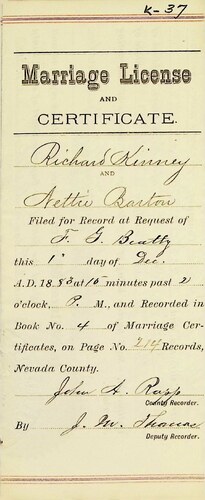 K-37
Marriage License
AND
CERTIFICATE.
Richard Kinney
AND
Nettie Barton
Filed for Record at Request of
F. G. Beatty
this 1st day of Dec.
A.D. 1883 at 15 minutes past 2
o'clock, P. M., and Recorded in
Book No. 4 of Marriage Cer-
tificates, on Page No. 214 Records,
Nevada County.
John A. Rapp
County Recorder.
By J. M. Thomas
Deputy Recorder.